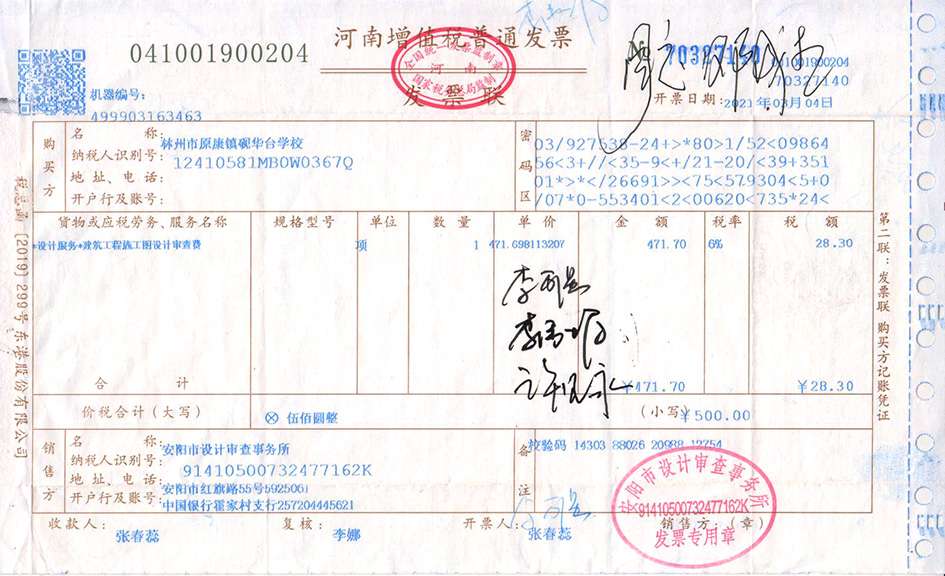 河南增值税普通发票
041001900204
全国统一发票监制章
河南
国家税务总局监制
发票联
№ 70327140
041001900204
70327140
机器编号:
499903163463
开票日期: 2021年03月04日
税总函〔2019〕299号 东港股份有限公司
购买方
名称: 林州市原康镇砚华台学校
纳税人识别号: 12410581MB0W0367Q
地址、电话:
开户行及账号:
密码区
03/927538-24+>*80>1/52<09864
56<3+//<35-9<+/21-20/<39+351
01*>*</26691>><75<579304<5+0
/07*0-553401<2<00620<735*24<
货物或应税劳务、服务名称 规格型号 单位 数量 单价 金额 税率 税额
*设计服务*建筑工程施工图设计审查费 项 1 471.698113207 471.70 6% 28.30
合计 ¥471.70 ¥28.30
价税合计(大写) ⊗ 伍佰圆整 (小写)¥500.00
第二联:发票联 购买方记账凭证
销售方
名称: 安阳市设计审查事务所
纳税人识别号: 91410500732477162K
地址、电话: 安阳市红旗路55号5925061
开户行及账号: 中国银行霍家村支行257204445621
备注
校验码 14303 88026 20988 12754
收款人: 张春蕊 复核: 李娜 开票人: 张春蕊 销售方:(章)
安阳市设计审查事务所
91410500732477162K
发票专用章